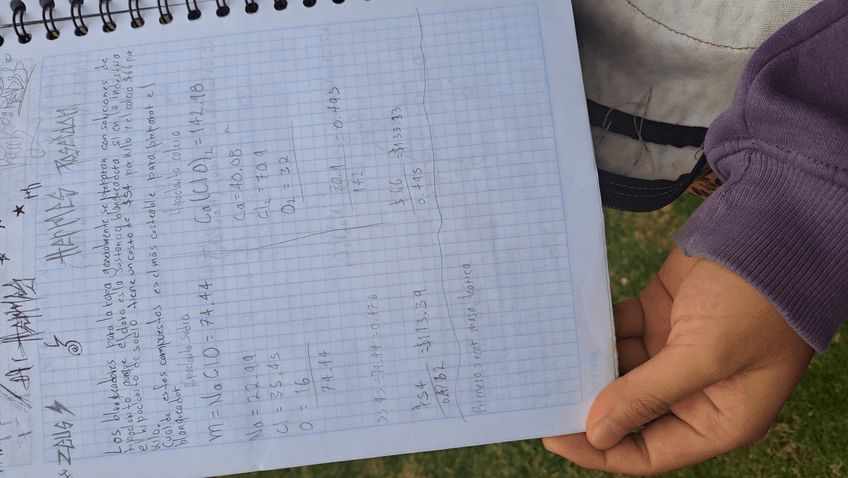 ZEUS
HAMMES
Los blanqueadores para la ropa generalmente se preparan con soluciones de
hipoclorito aunque el cloro es la sustancia blanqueadora si en la industria
el hipoclorito de sodio tiene un costo de $54 por kilo y el calcio $66 por
kilo.
Cual de estos compuestos es el más costeable para preparar el
blanqueador
hipoclorito calcio
m = NaClO = 74.44
Ca(ClO)₂ = 142.98
Na = 22.99
Cl = 35.45
O = 16
74.44
Ca = 40.08
Cl₂ = 70.9
O₂ = 32
35.45 ÷ 74.44 = 0.476
70.9
142
= 0.495
$54
0.4762
= $113.39
$66
0.495
= $133.33
Primero sacar masa